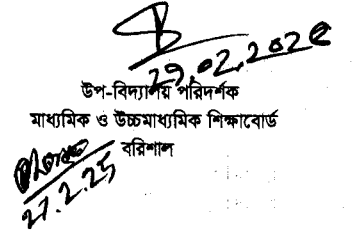 ২৭.০২.২০২৫
উপ-বিদ্যালয় পরিদর্শক
মাধ্যমিক ও উচ্চমাধ্যমিক শিক্ষাবোর্ড
বরিশাল
27.2.25